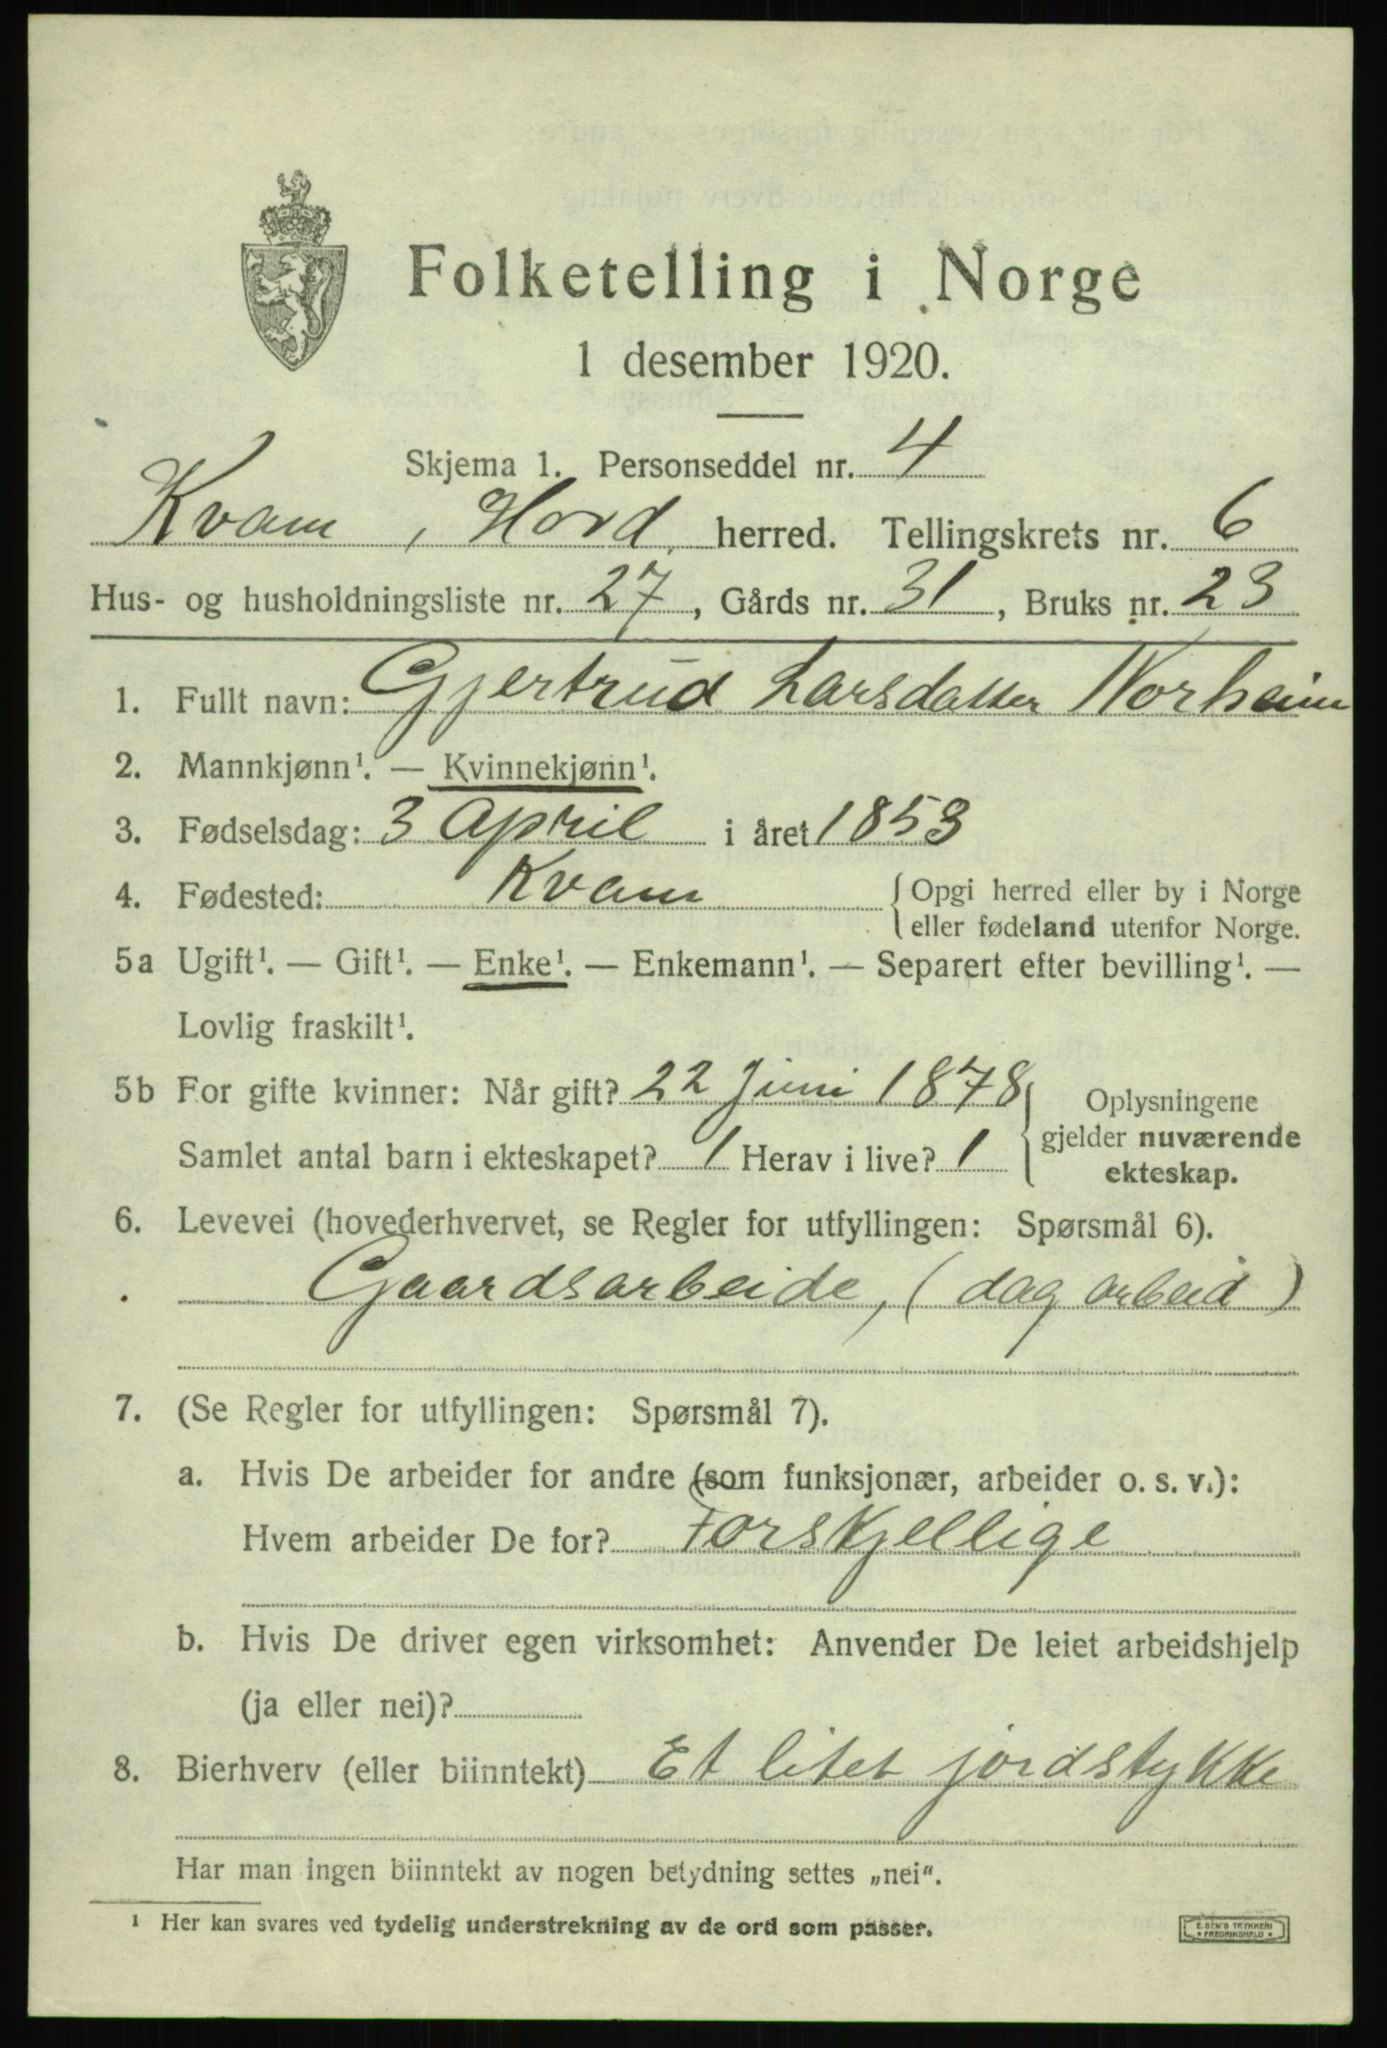 Folketelling i Norge
1 desember 1920.
Skjema 1. Personseddel nr. 4
Kvam, Hord. herred. Tellingskrets nr. 6
Hus- og husholdningsliste nr. 27, Gårds nr. 31, Bruks nr. 23
1. Fullt navn: Gjertrud Larsdatter Norheim
2. Mannkjønn¹. — Kvinnekjønn¹.
3. Fødselsdag: 3 April i året 1853
4. Fødested: Kvam { Opgi herred eller by i Norge
eller fødeland utenfor Norge.
5a Ugift¹. — Gift¹. — Enke¹. — Enkemann¹. — Separert efter bevilling¹. —
Lovlig fraskilt¹.
5b For gifte kvinner: Når gift? 22 Juni 1878
Samlet antal barn i ekteskapet? 1 Herav i live? 1
Oplysningene
gjelder nuværende
ekteskap.
6. Levevei (hovederhvervet, se Regler for utfyllingen: Spørsmål 6).
Gaardsarbeide, (dagarbeid)
7. (Se Regler for utfyllingen: Spørsmål 7).
a. Hvis De arbeider for andre (som funksjonær, arbeider o. s. v.):
Hvem arbeider De for? Forskjellige
b. Hvis De driver egen virksomhet: Anvender De leiet arbeidshjelp
(ja eller nei)?
8. Bierhverv (eller biinntekt) Et litet jordstykke
Har man ingen biinntekt av nogen betydning settes „nei“.
¹ Her kan svares ved tydelig understrekning av de ord som passer.
E. SEM'S TRYKKERI
* FREDRIKSHALD *